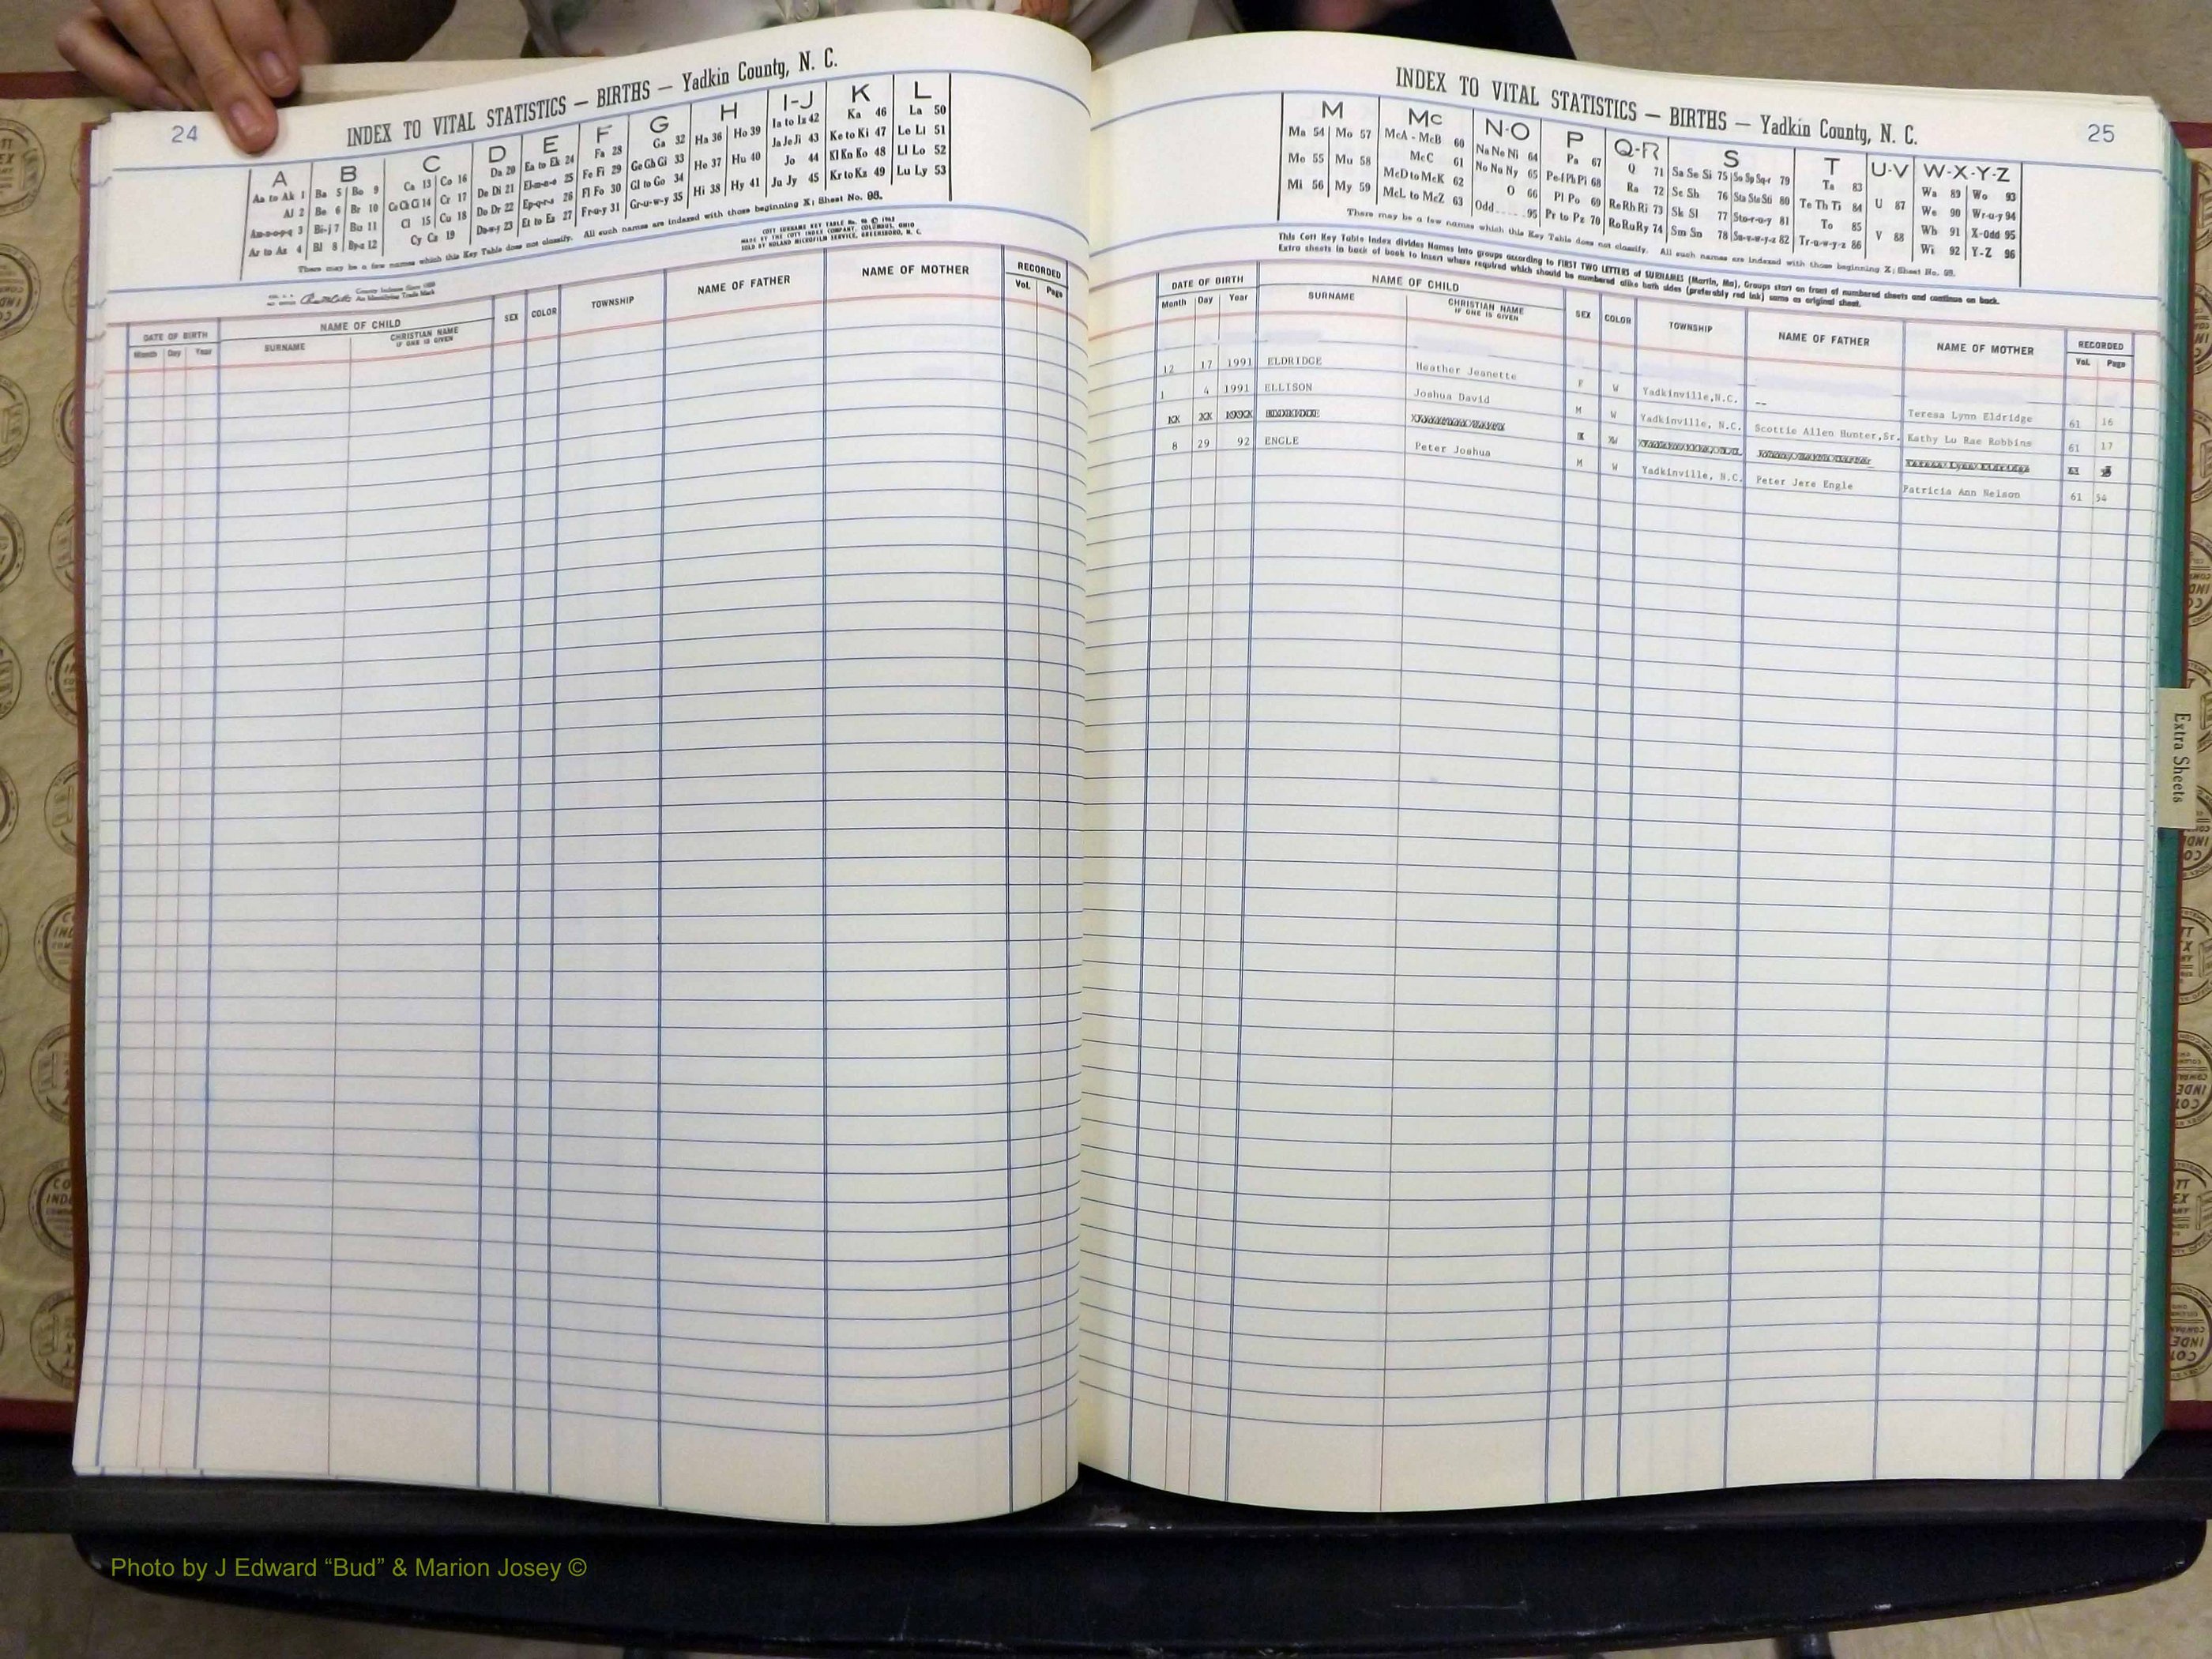 24
INDEX TO VITAL STATISTICS — BIRTHS — Yadkin County, N. C.
A B C D E F G H I-J K L
Aa to Ak 1 Ba 5 Bo 9 Ca 13 Co 16 Da 20 Ea to Ek 24 Fa 28 Ga 32 Ha 36 Ho 39 Ia to Iz 42 Ka 46 La 50
Al 2 Be 6 Br 10 Ce Ch Ci 14 Cr 17 De Di 21 El-m-n-o 25 Fe Fi 29 Ge Gh Gi 33 He 37 Hu 40 Ja Je Ji 43 Ke to Ki 47 Le Li 51
Am-n-o-p-q 3 Bi-j 7 Bu 11 Cl 15 Cu 18 Do Dr 22 Ep-q-r-s 26 Fl Fo 30 Gl to Go 34 Hi 38 Hy 41 Jo 44 Kl Kn Ko 48 Ll Lo 52
Ar to Az 4 Bl 8 By-z 12 Cy Cz 19 Du-w-y 23 Et to Ez 27 Fr-u-y 31 Gr-u-w-y 35 Ju Jy 45 Kr to Kz 49 Lu Ly 53
There may be a few names which this Key Table does not classify. All such names are indexed with those beginning X; Sheet No. 98.
COTT SURNAME KEY TABLE No. 96 © 1963
MADE BY THE COTT INDEX COMPANY, COLUMBUS, OHIO
SOLD BY ROLAND MICROFILM SERVICE, GREENSBORO, N. C.
County Indexes Since 1888
An Identifying Trade Mark
DATE OF BIRTH NAME OF CHILD SEX COLOR TOWNSHIP NAME OF FATHER NAME OF MOTHER RECORDED
Month Day Year SURNAME CHRISTIAN NAME IF ONE IS GIVEN Vol. Page
25
INDEX TO VITAL STATISTICS — BIRTHS — Yadkin County, N. C.
M Mc N-O P Q-R S T U-V W-X-Y-Z
Ma 54 Mo 57 McA - McB 60 Na Ne Ni 64 Pa 67 Q 71 Sa Se Si 75 So Sp Sq-r 79 Ta 83 U 87 Wa 89 Wo 93
Me 55 Mu 58 McC 61 No Nu Ny 65 Pe-f Ph Pi 68 Ra 72 Sc Sh 76 Sta Ste Sti 80 Te Th Ti 84 V 88 We 90 Wr-u-y 94
Mi 56 My 59 McD to McK 62 O 66 Pl Po 69 Re Rh Ri 73 Sk Sl 77 Sto-r-u-y 81 To 85 Wh 91 X-Odd 95
McL to McZ 63 Odd 95 Pr to Pz 70 Ro Ru Ry 74 Sm Sn 78 Su-v-w-y-z 82 Tr-u-w-y-z 86 Wi 92 Y-Z 96
There may be a few names which this Key Table does not classify. All such names are indexed with those beginning X; Sheet No. 98.
This Cott Key Table Index divides Names into groups according to FIRST TWO LETTERS of SURNAMES (Martin, Ma), Groups start on front of numbered sheets and continue on back.
Extra sheets in back of book to insert where required which should be numbered alike both sides (preferably red ink) same as original sheet.
DATE OF BIRTH NAME OF CHILD SEX COLOR TOWNSHIP NAME OF FATHER NAME OF MOTHER RECORDED
Month Day Year SURNAME CHRISTIAN NAME IF ONE IS GIVEN Vol. Page
12 17 1991 ELDRIDGE Heather Jeanette F W Yadkinville,N.C. -- Teresa Lynn Eldridge 61 16
1 4 1991 ELLISON Joshua David M W Yadkinville, N.C. Scottie Allen Hunter,Sr. Kathy Lu Rae Robbins 61 17
8 29 92 ENGLE Peter Joshua M W Yadkinville, N.C. Peter Jere Engle Patricia Ann Nelson 61 54
Extra Sheets
Photo by J Edward “Bud” & Marion Josey ©